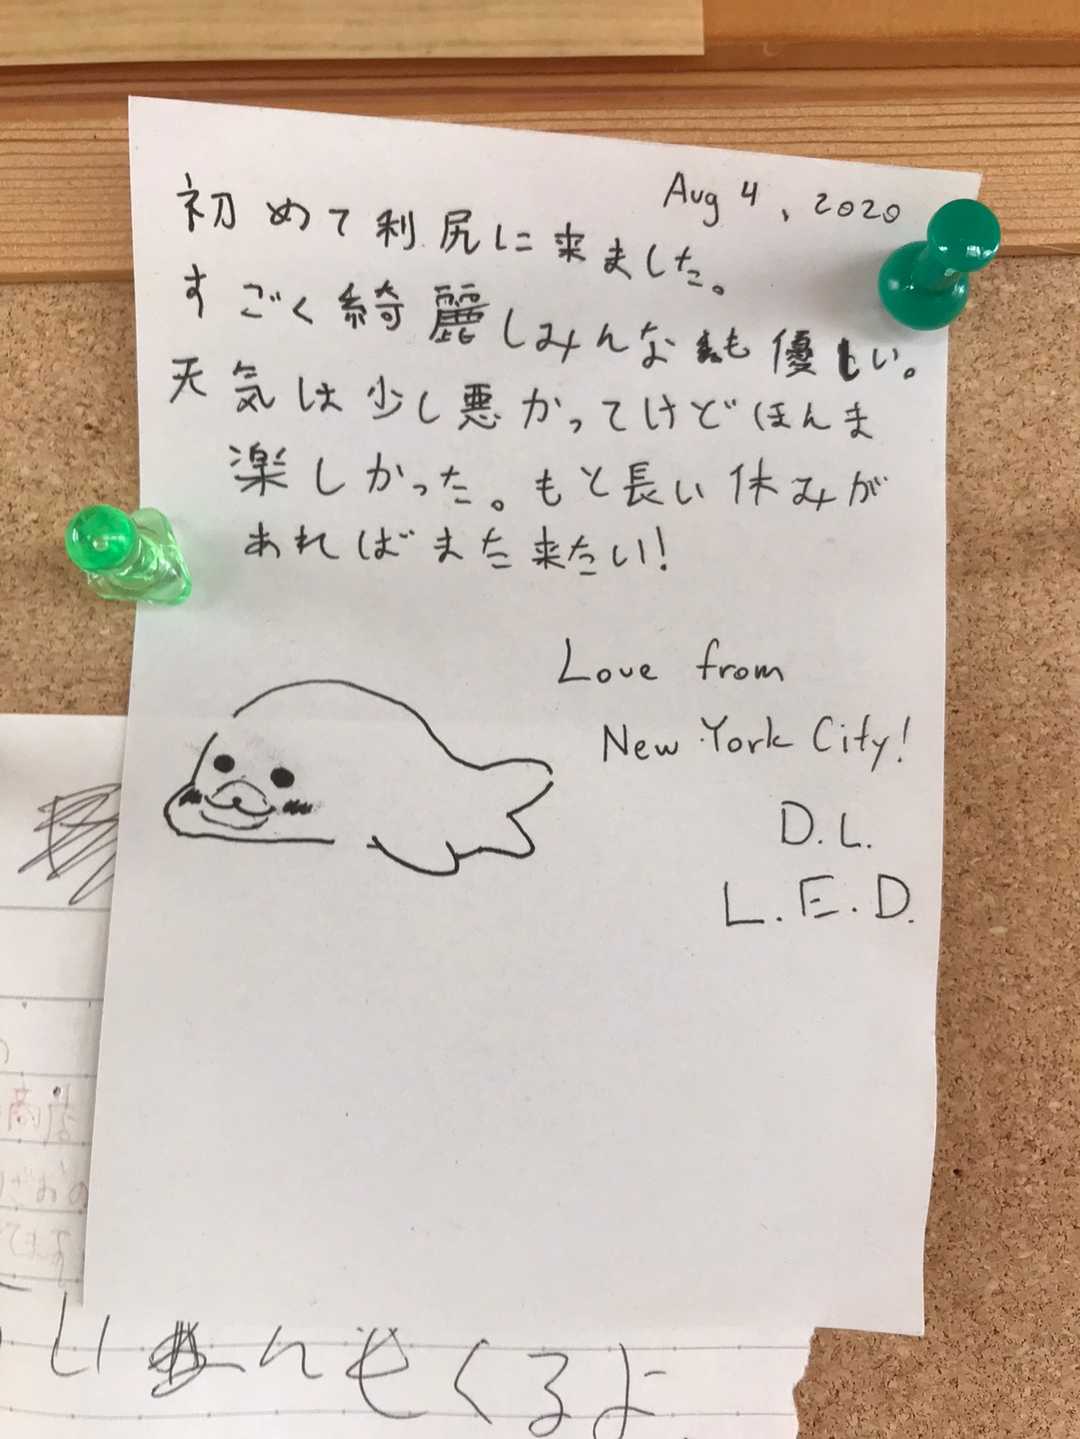 Aug 4, 2020
初めて利尻に来ました。
すごく綺麗しみんなも優しい。
天気は少し悪かってけどほんま
楽しかった。もと長い休みが
あればまた来たい!
Love from
New York City!
D.L.
L.E.D.
んもくるよ